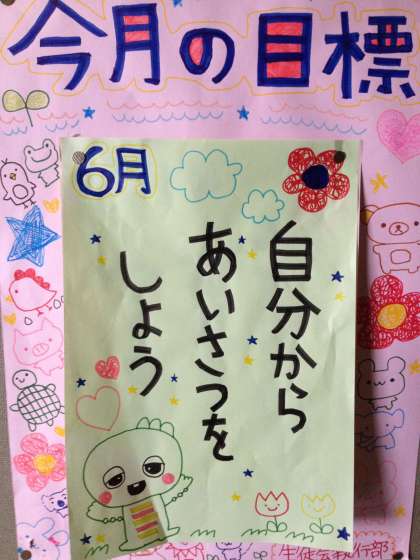 今月の目標
6月
自分から
あいさつを
しよう
生徒会執行部